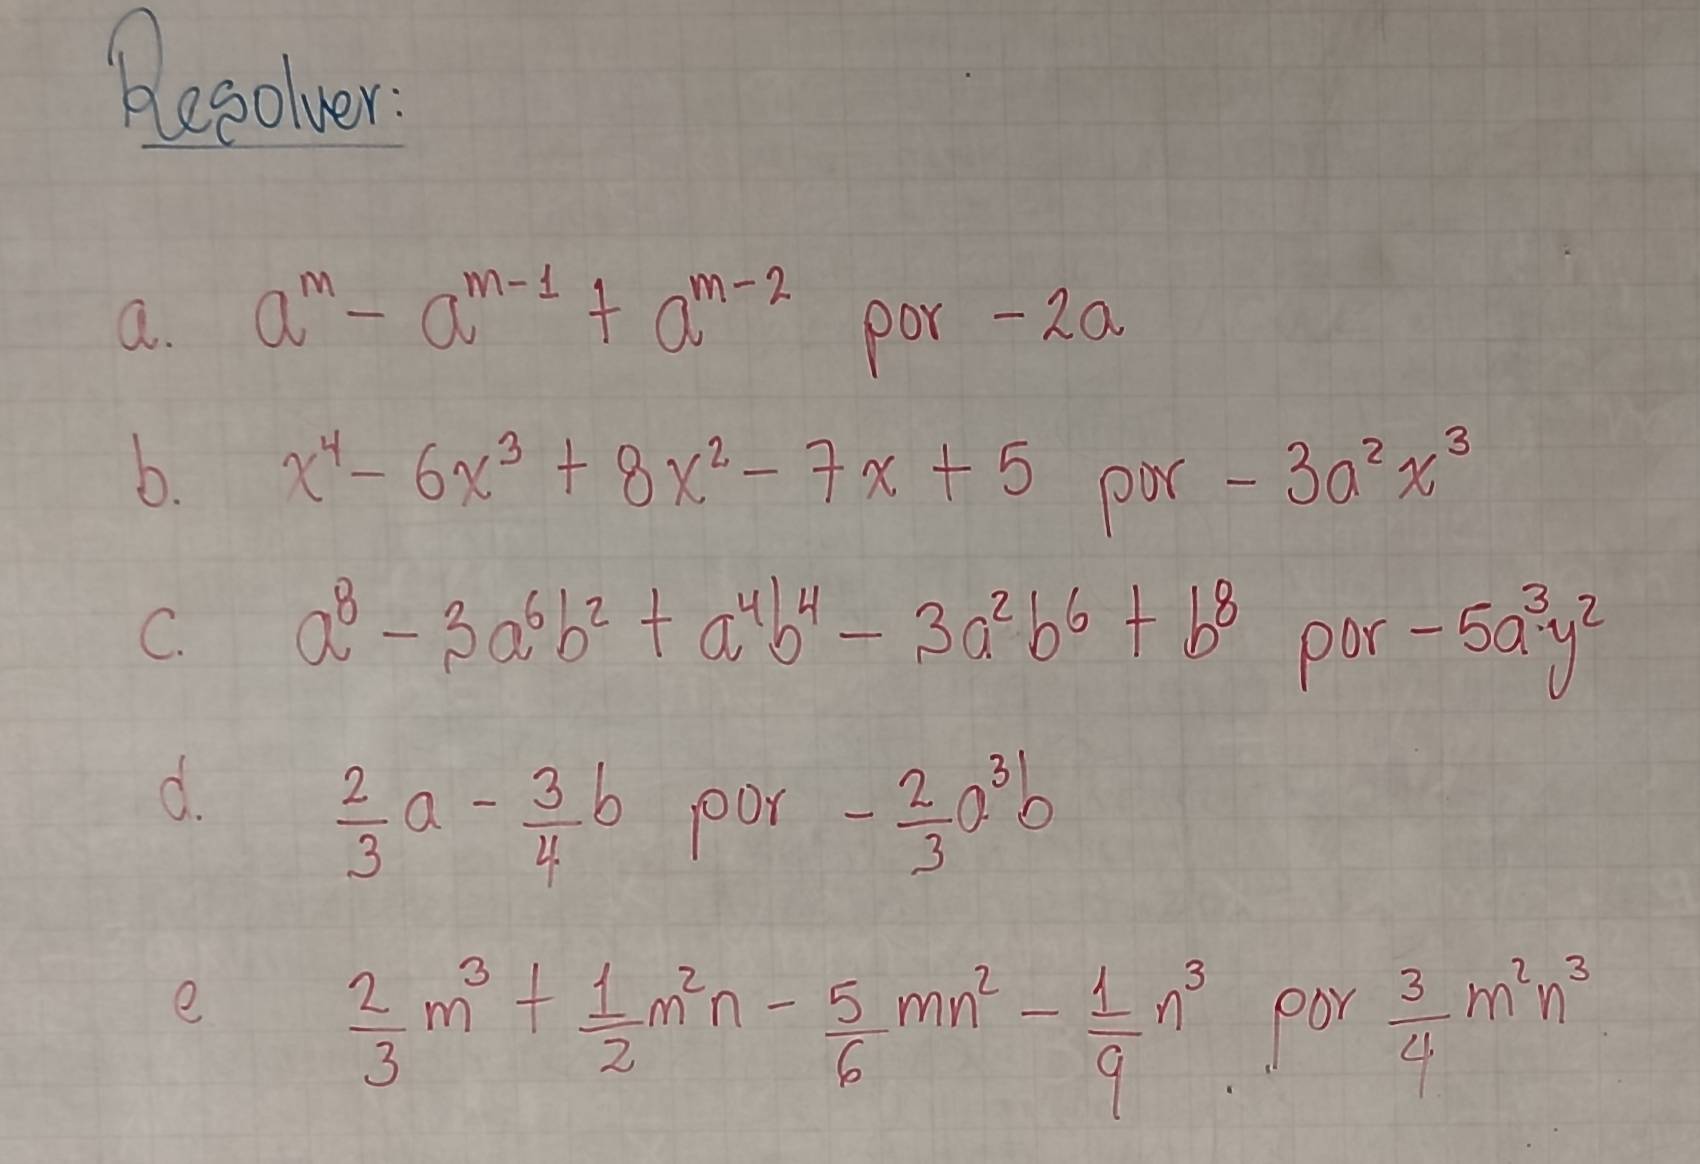 Resolver:
a. a^m - a^(m-1) + a^(m-2) por -2a
b. x⁴ - 6x³ + 8x² - 7x + 5 por - 3a²x³
c. a⁸ - 3a⁶b² + a⁴b⁴ - 3a²b⁶ + b⁸ por - 5a³y²
d. 2/3 a - 3/4 b por - 2/3 a³b
e 2/3 m³ + 1/2 m²n - 5/6 mn² - 1/9 n³ por 3/4 m²n³